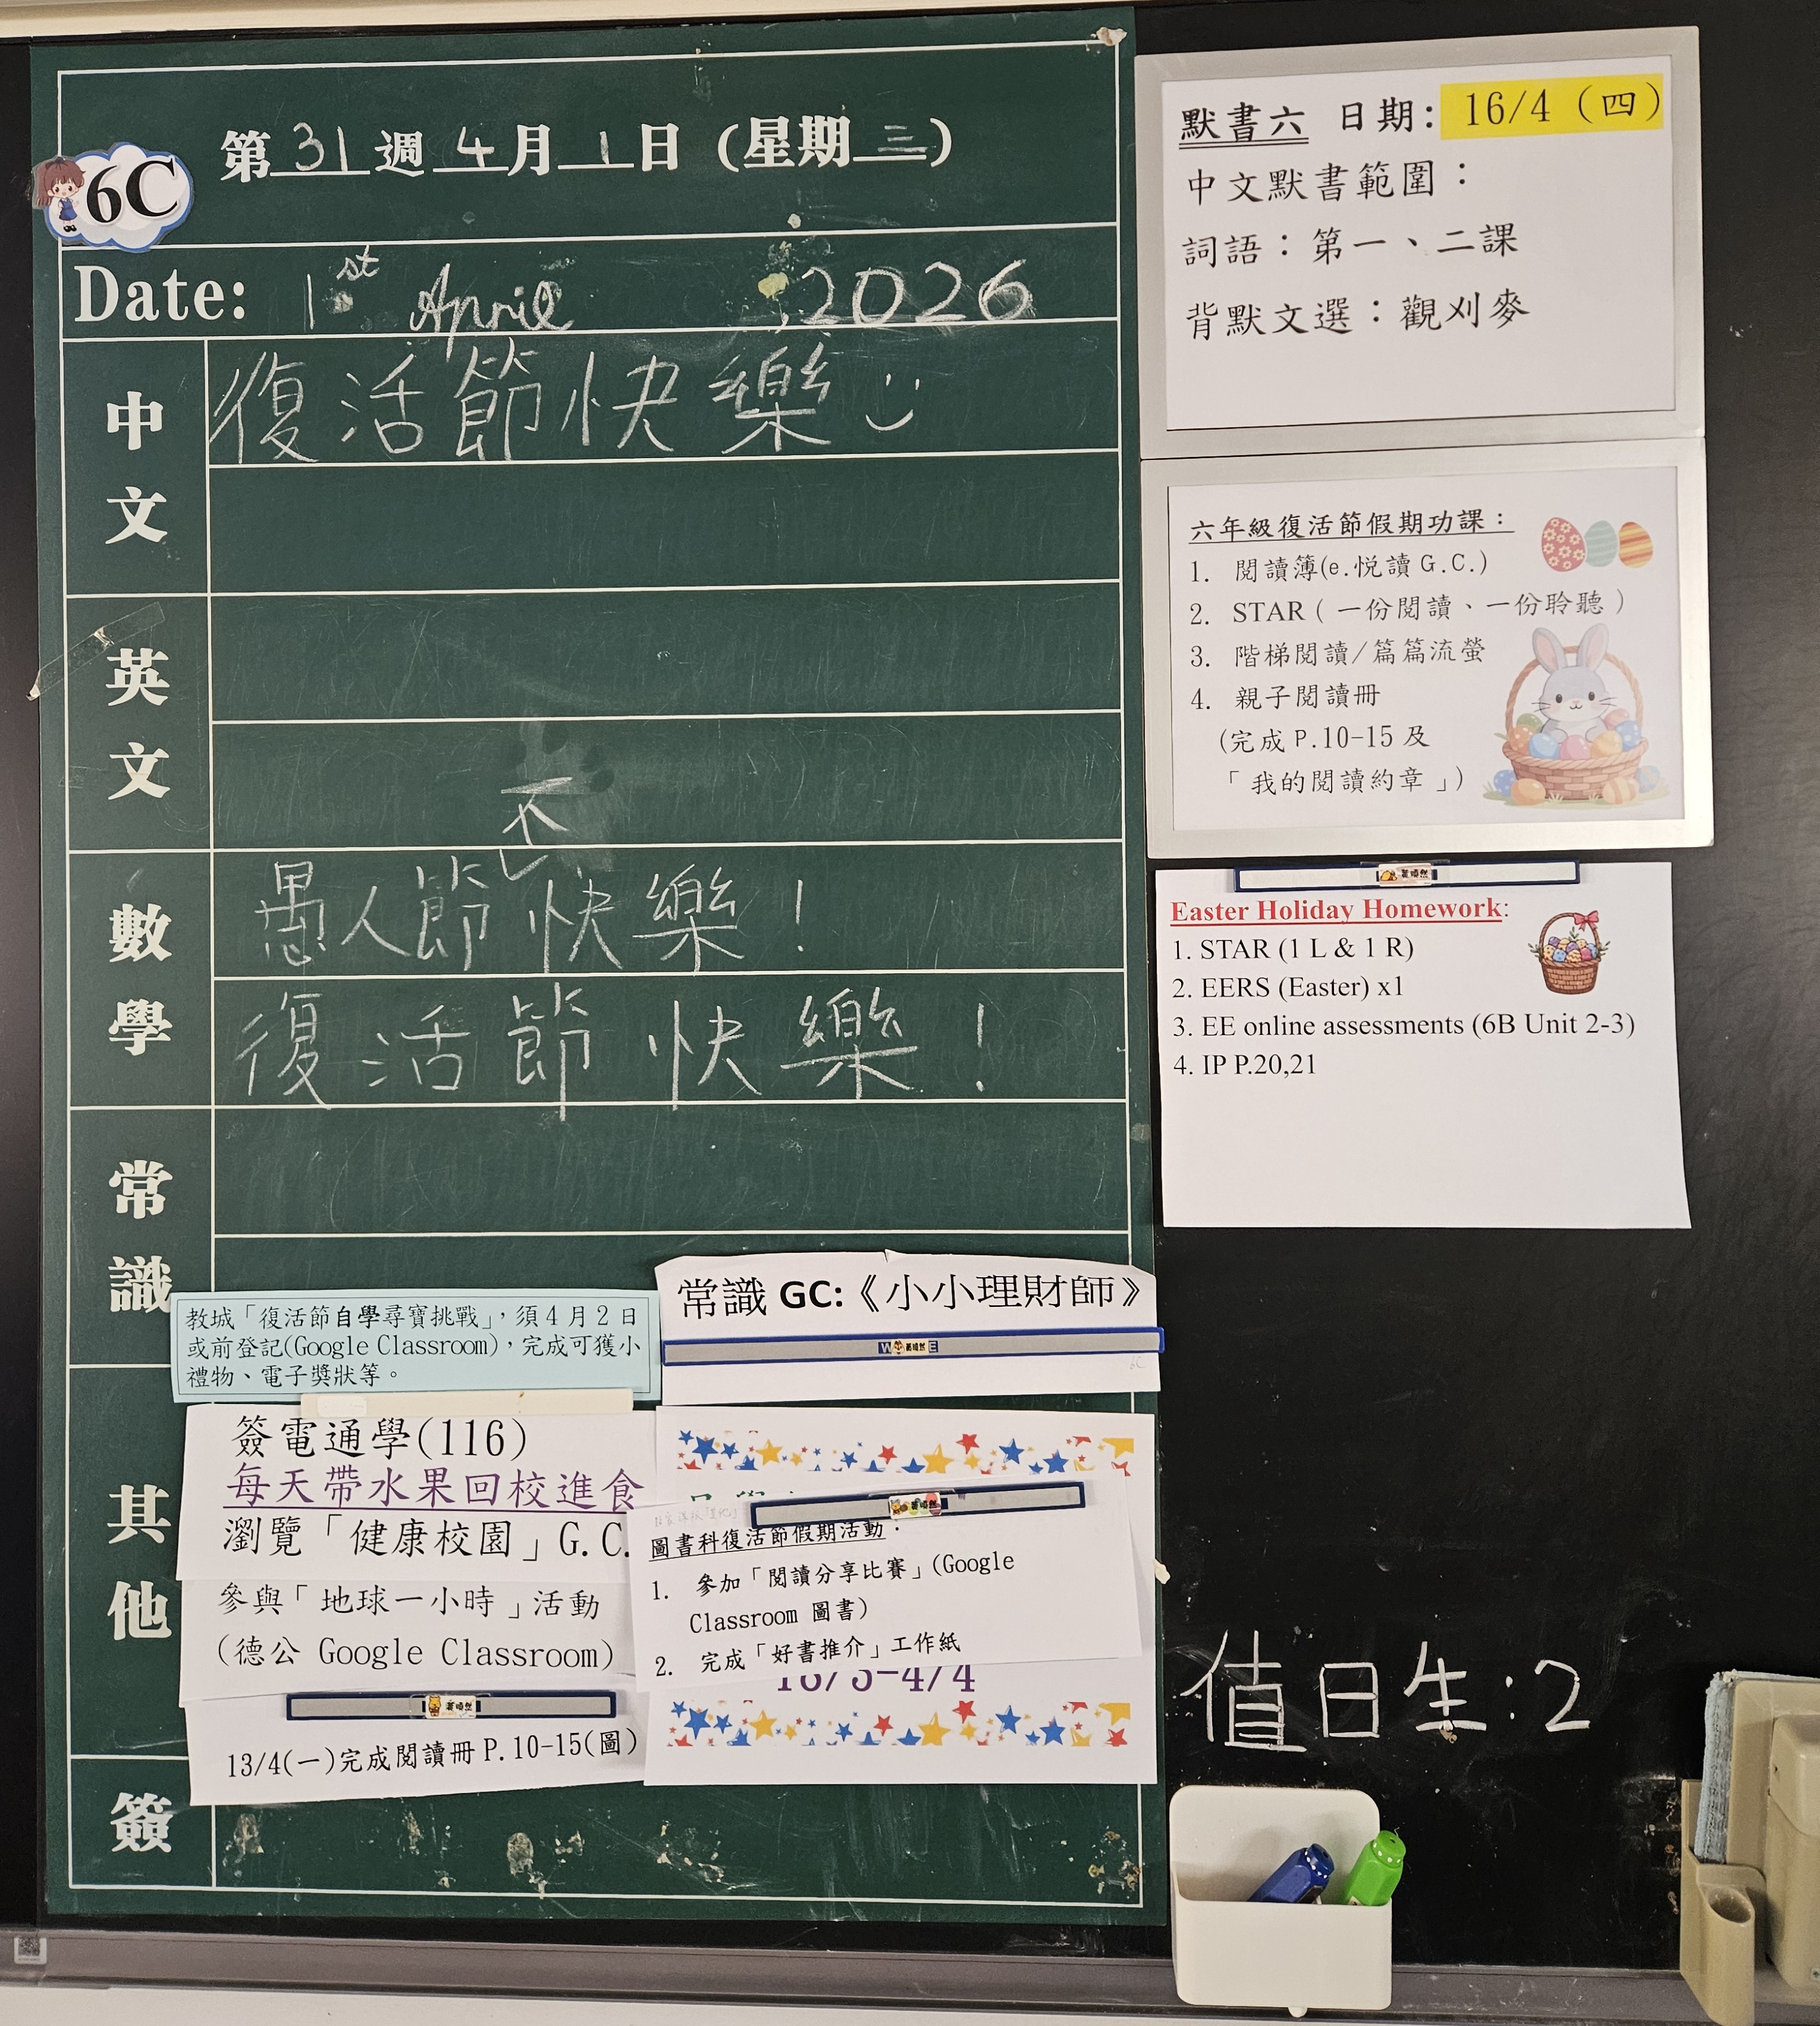 6C
第31週4月1日(星期三)
Date: 1st April, 2026
中文
復活節快樂
英文
數學
愚人節不快樂!
復活節快樂!
常識
教城「復活節自學尋寶挑戰」,須4月2日
或前登記(Google Classroom),完成可獲小
禮物、電子獎狀等。
常識 GC:《小小理財師》
6C
其他
簽電通學(116)
每天帶水果回校進食
瀏覽「健康校園」G.C.
參與「地球一小時」活動
(德公 Google Classroom)
13/4(一)完成閱讀冊 P.10-15(圖)
圖書科復活節假期活動:
1. 參加「閱讀分享比賽」(Google
Classroom 圖書)
2. 完成「好書推介」工作紙
簽
默書六 日期: 16/4 (四)
中文默書範圍:
詞語:第一、二課
背默文選:觀刈麥
六年級復活節假期功課:
1. 閱讀簿(e.悅讀 G.C.)
2. STAR(一份閱讀、一份聆聽)
3. 階梯閱讀/篇篇流螢
4. 親子閱讀冊
(完成 P.10-15 及
「我的閱讀約章」)
Easter Holiday Homework:
1. STAR (1 L & 1 R)
2. EERS (Easter) x1
3. EE online assessments (6B Unit 2-3)
4. IP P.20,21
值日生:2